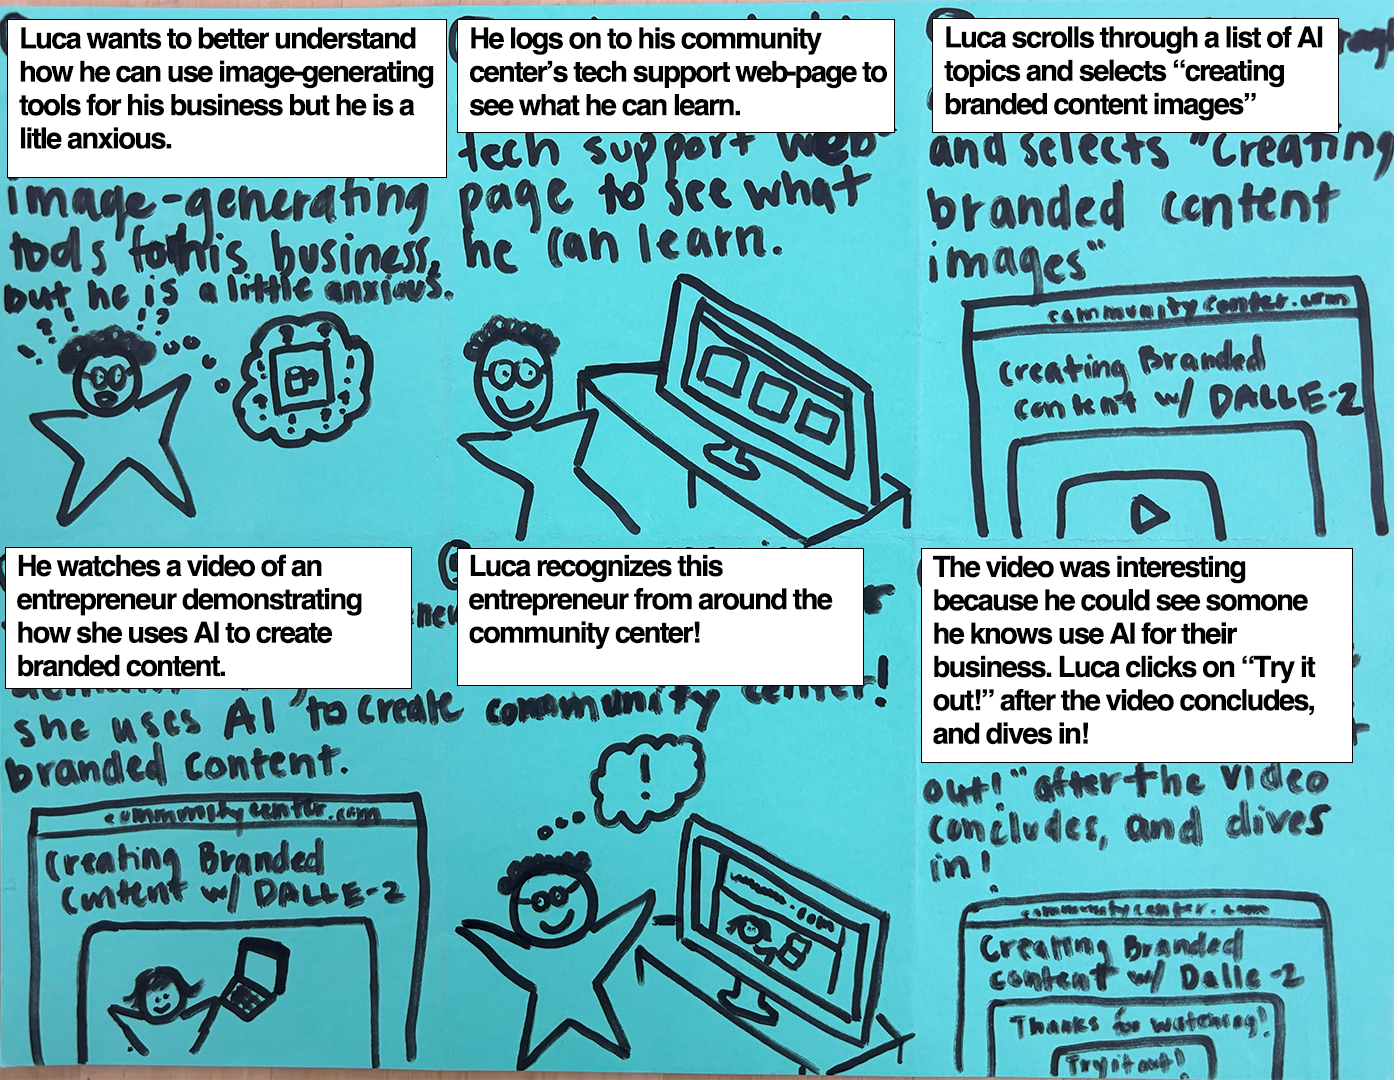 Luca wants to better understand
how he can use image-generating
tools for his business but he is a
litle anxious.
image-generating
tools for his business,
but he is a little anxious.
He logs on to his community
center's tech support web-page to
see what he can learn.
tech support web
page to see what
he can learn.
Luca scrolls through a list of AI
topics and selects “creating
branded content images”
and selects "Creating
branded content
images"
communitycenter.com
Creating Branded
content w/ DALLE-2
He watches a video of an
entrepreneur demonstrating
how she uses AI to create
branded content.
she uses AI to create
branded content.
communitycenter.com
Creating Branded
Content w/ DALLE-2
Luca recognizes this
entrepreneur from around the
community center!
community center!
!
.com
The video was interesting
because he could see somone
he knows use AI for their
business. Luca clicks on “Try it
out!” after the video concludes,
and dives in!
out!" after the video
concludes, and dives
in!
communitycenter.com
Creating Branded
content w/ Dalle-2
Thanks for watching!
Try it out!